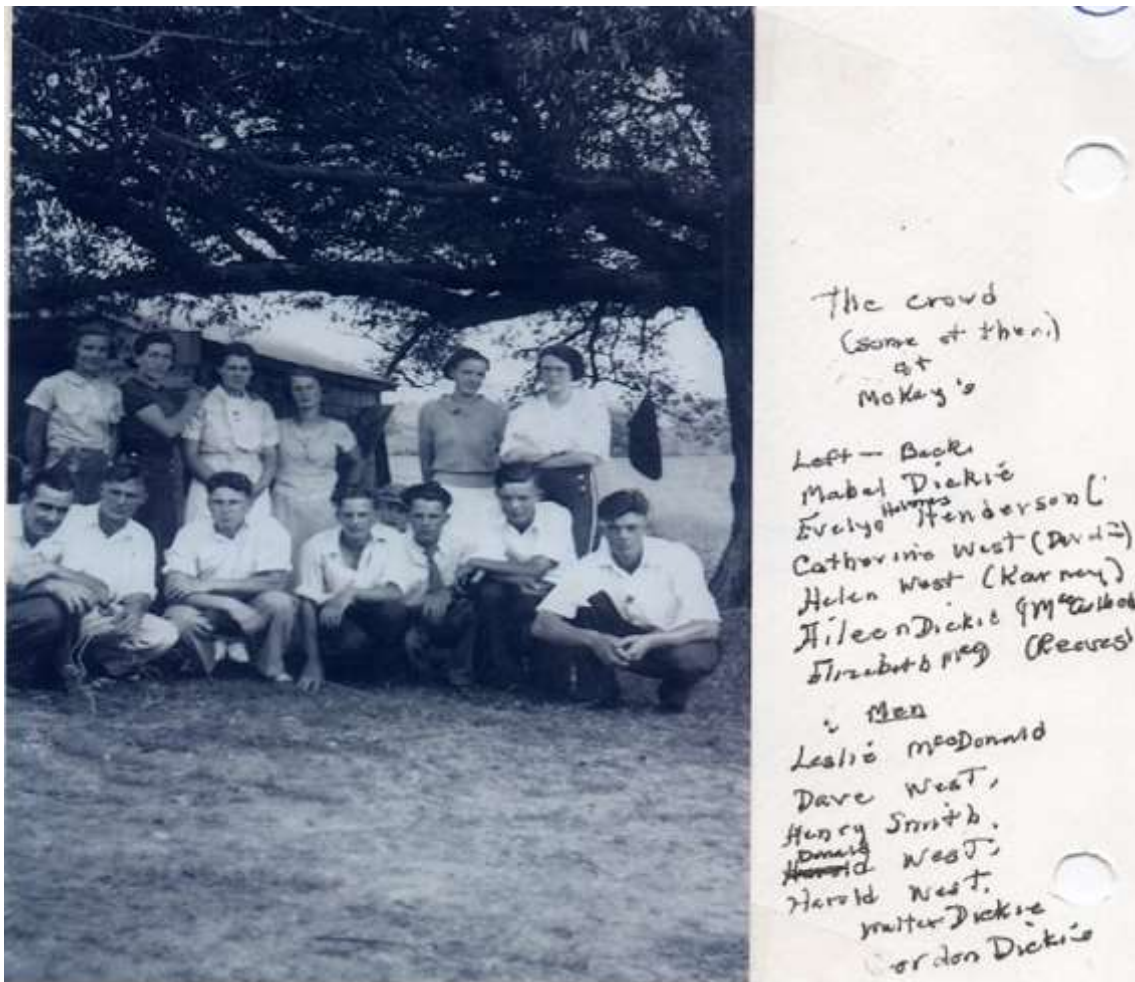 The crowd
(some of them)
at
McKay's
Left — Back
Mabel Dickie
Evelyn Holmes Henderson (
Catherine West
Helen West (Karney)
Aileen Dickie
Elizabeth (Reaves)
Men
Leslie MacDonald
Dave West,
Henry Smith,
Donald West,
Harold West,
Walter Dickie
ordon Dickie